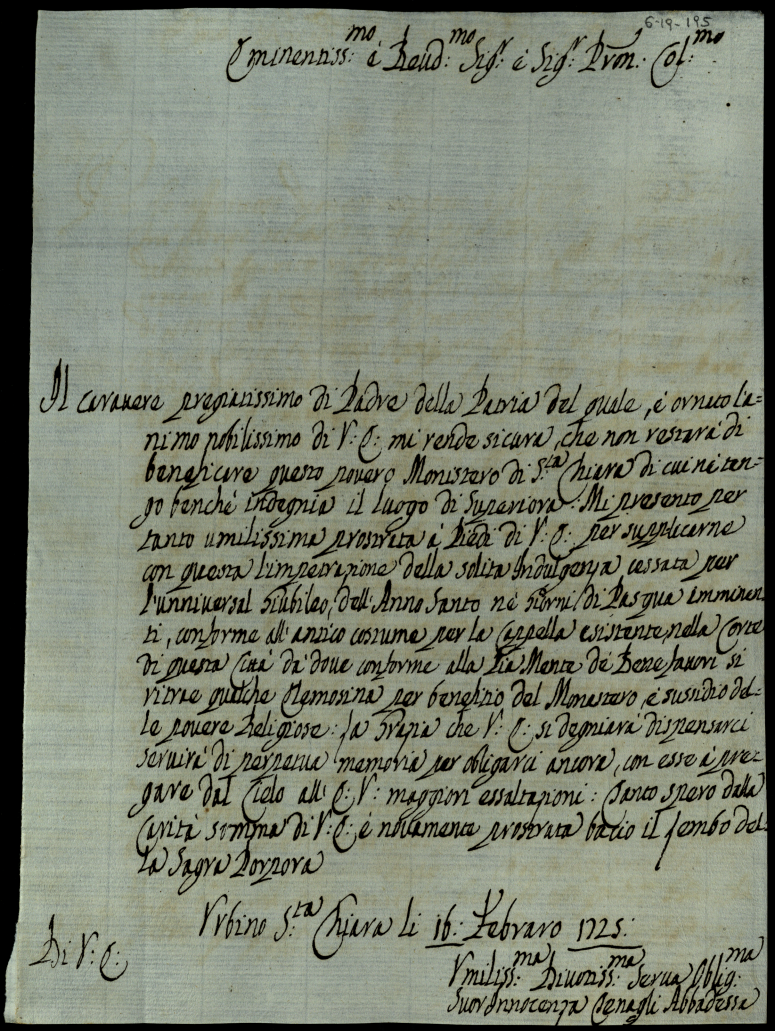 6-19-195
Eminentiss:mo é Reud:mo Sigr é Sigr Pron: Col:mo
Il carattere pregiatissimo di Padre della Patria del quale, é ornato l'a=
nimo nobilissimo di V: E: mi rende sicura, che non restará di
beneficare questo povero Monistero di S:ta Chiara di cui né ten-
go benché indegnia il luogo di Superiora: Mi presento per
tanto umilissima prostrata á Piedi di V: E: per supplicarne
con questa l'impetrazione della solita Indulgenza cessata per
l'unniversal Giubileo, dell'Anno Santo né Giorni di Pasqua imminen
ti, conforme all'antico costume per la Cappella esistente nella Corte
di questa Cittá dá doue conforme alla Pia Mente de Benefattori si
ritrae qualche Elemosina per benefitio del Monastero, é sussidio del-
le povere Religiose: la Grazia che V: E: si degniará dispensarci
seruirá di perpetua memoria per obligarci ancora, con esse á pre-
gare dal Cielo all' E: V: maggiori essaltazioni: Tanto spero dalla
Caritá somma di V: E: é novamente prostrata bacio il lembo del-
la Sagra Porpora
Vrbino S:ta Chiara li 16: Febraro 1725:
Di V: E:
Vmiliss:ma Diuotiss:ma Serua Oblig:ma
Suor Innocenza Abbadessa